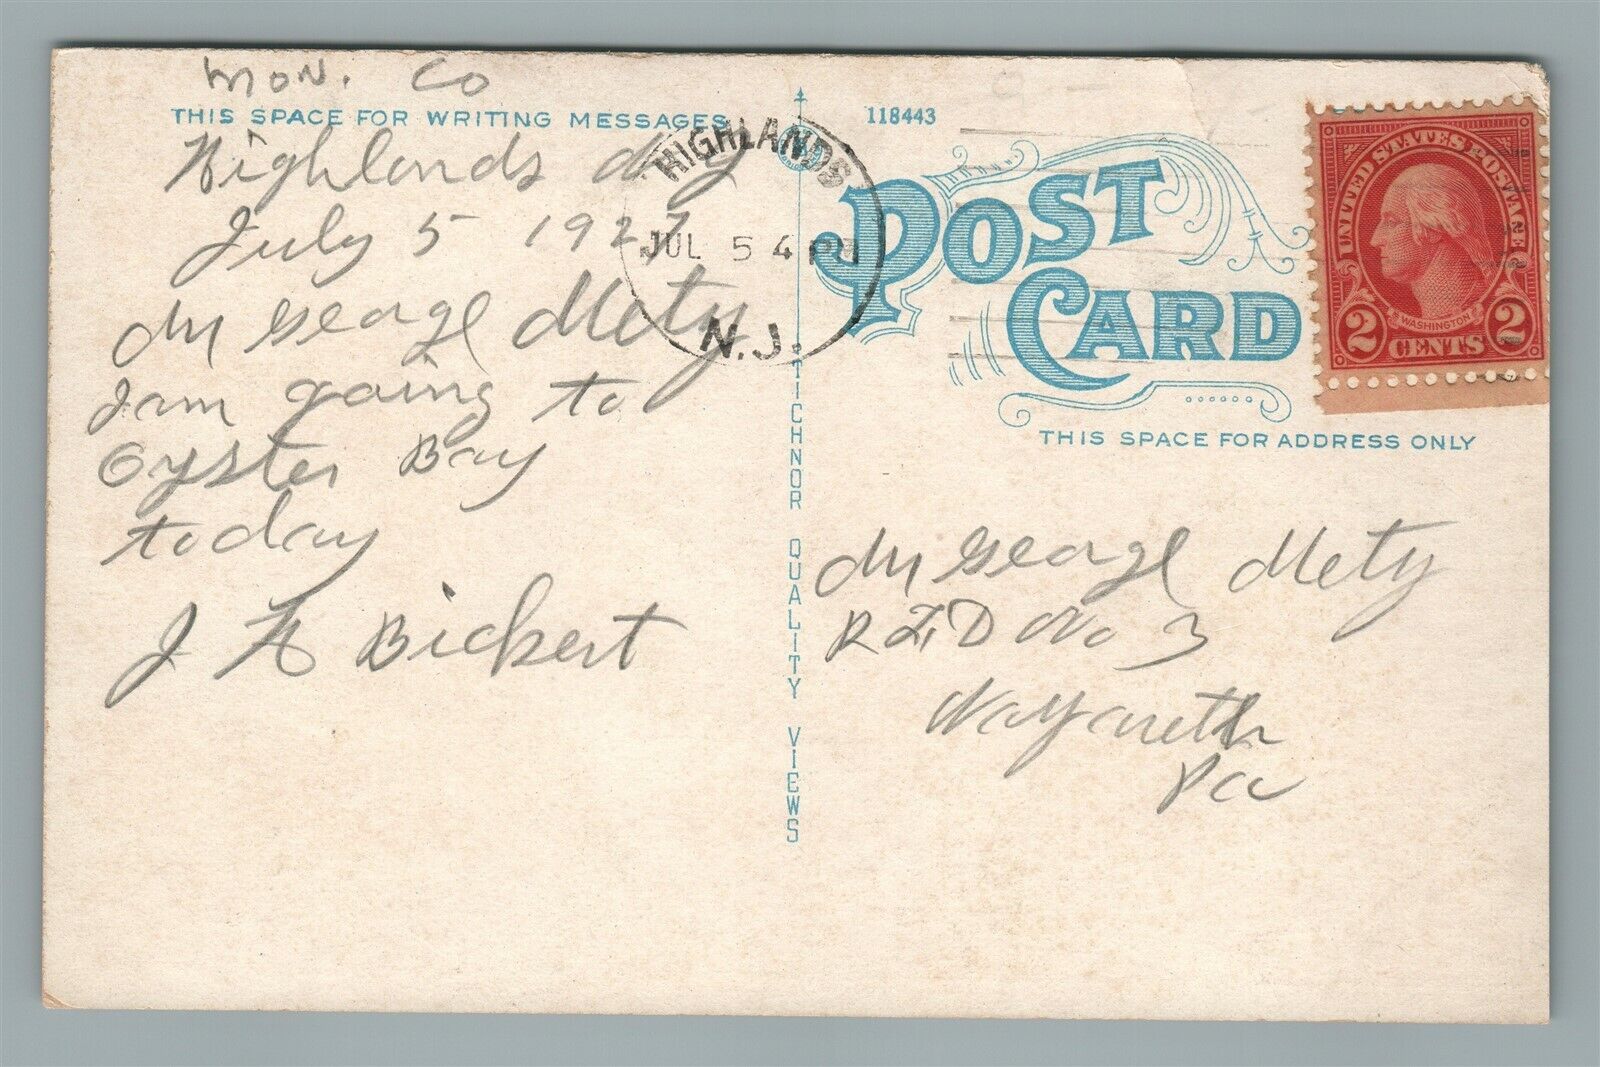 Mon. Co
THIS SPACE FOR WRITING MESSAGES
Highlands NJ
July 5 1927
Mr George Metz
I am going to
Oyster Bay
today
J H Bickert
HIGHLANDS
JUL 5 4 PM
N.J.
TICHNOR QUALITY VIEWS
118443
POST CARD
THIS SPACE FOR ADDRESS ONLY
UNITED STATES POSTAGE
WASHINGTON
2 CENTS 2
Mr George Metz
R F D No 3
Nazareth
Pa